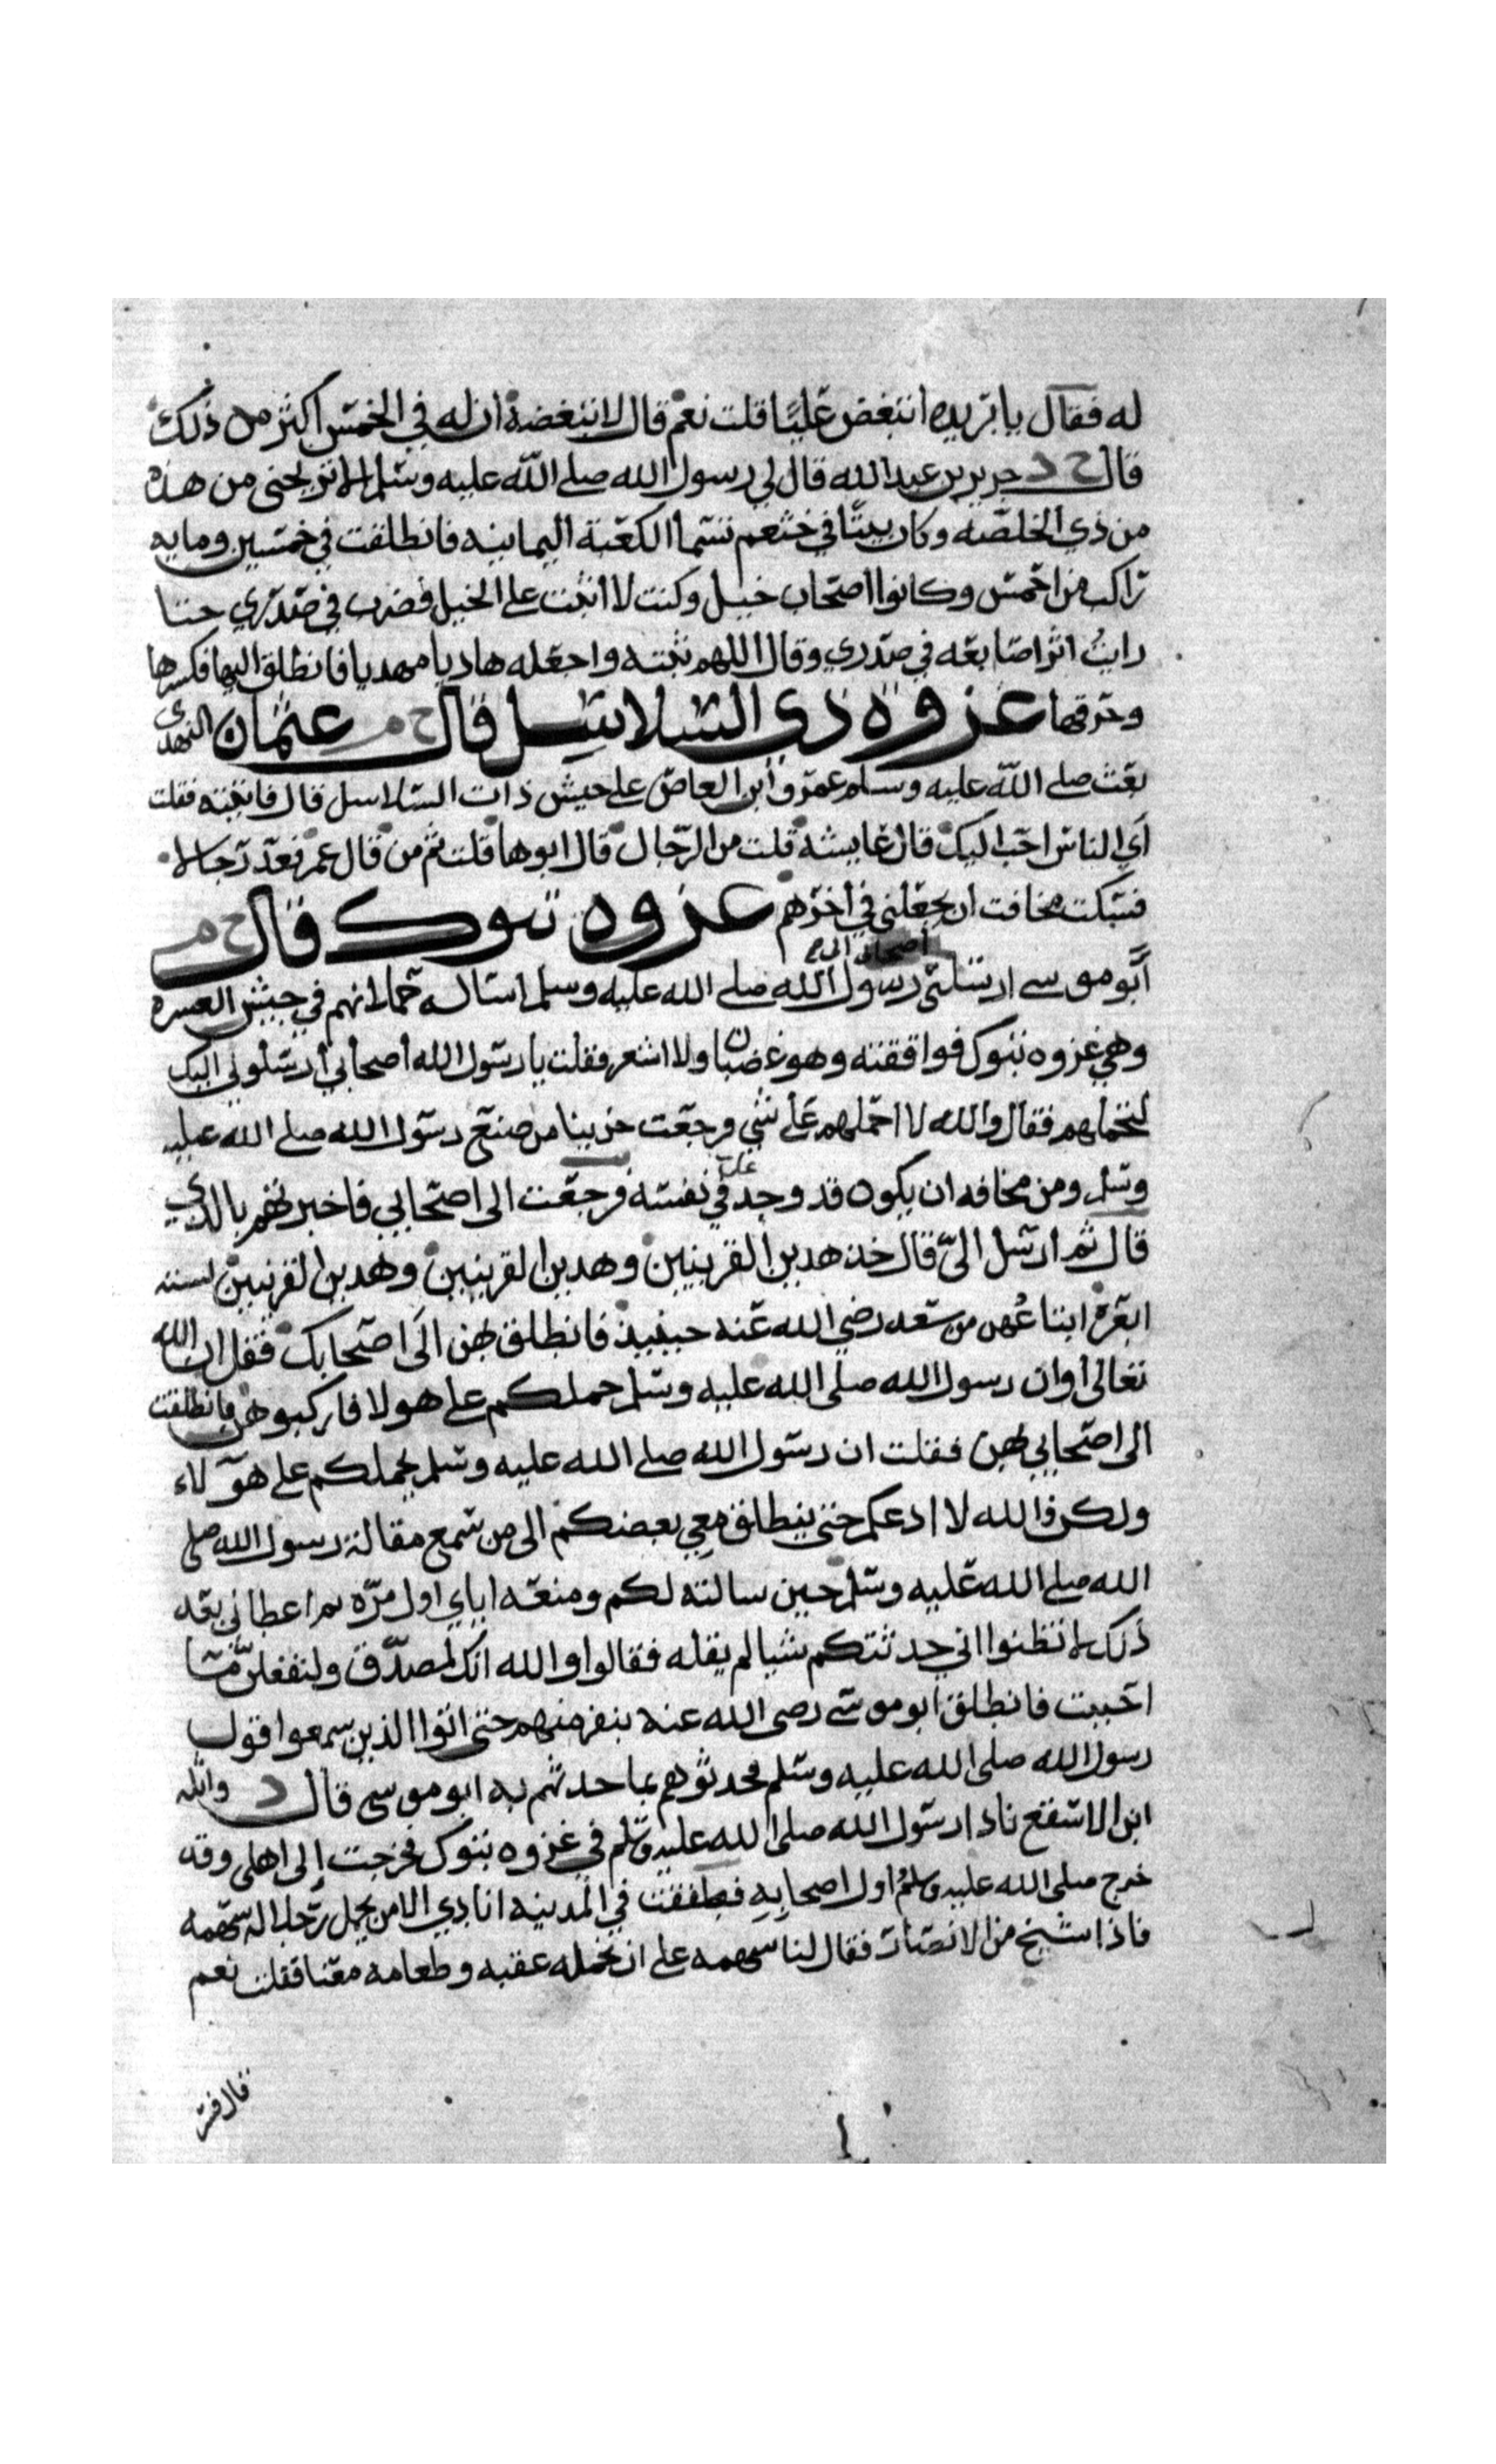 له فقال يا بريده اتبغض عليا قلت نعم قال لا تبغضه ان له في الخمس اكثر من ذلك
قال ح د جرير بن عبد الله قال لي رسول الله صلى الله عليه وسلم الا تريحني من هذه
من ذي الخلصه وكان بيتا في خثعم تسما الكعبة اليمانيه فانطلقت في خمسين ومايه
راكب من احمس وكانوا اصحاب خيل وكنت لا اثبت على الخيل فضرب في صدري حتا
رايت اثر اصابعه في صدري وقال اللهم ثبته واجعله هاديا مهديا فانطلق اليها فكسرها
وحرقها غزوه ذي السلاسل قال ح م عثمان النهدي
بعث صلى الله عليه وسلم عمرو ابن العاص على جيش ذات السلاسل قال فاتيته فقلت
اي الناس احب اليك قال عايشه قلت من الرجال قال ابوها قلت ثم من قال عمر فعد رجالا
فسكت مخافت ان يجعلني في اخرهم غزوه تبوك قال ح م
اصحابي الى
ابو موسى ارسلني رسول الله صلى الله عليه وسلم اساله حملانهم في جيش العسره
وهي غزوه تبوك فوافقته وهو غضبان ولا اشعر فقلت يا رسول الله اصحابي ارسلوني اليك
لتحملهم فقال والله لا احملهم على شي فرجعت حزينا من صنع رسول الله صلى الله عليه
وسلم ومن مخافه ان يكون قد وجد في نفسه علي فرجعت الى اصحابي فاخبرتهم بالذي
قال ثم ارسل الي قال خذ هدين القرينين وهدين القرينين وهدين القرينين لسته
ابعره ابتاعهن من سعد رضي الله عنه حينيذ فانطلق بهن الى اصحابك فقل ان الله
تعالى او ان رسول الله صلى الله عليه وسلم حملكم على هولا فاركبوهن فانطلقت
الى اصحابي بهن فقلت ان رسول الله صلى الله عليه وسلم يحملكم على هولاء
ولكن والله لا ادعكم حتى ينطلق معي بعضكم الى من سمع مقالة رسول الله صلى
الله صلى الله عليه وسلم حين سالته لكم ومنعه اياي اول مره ثم اعطاني بعد
ذلك لا تظنوا اني حدثتكم شيا لم يقله فقالوا والله انك لمصدق ولنفعلن مشا
احببت فانطلق ابو موسى رضى الله عنه بنفر منهم حتى اتوا الذين سمعوا قول
رسول الله صلى الله عليه وسلم فحدثوهم بما حدثهم به ابو موسى قال د واثله
ابن الاسقع نادا رسول الله صلى الله عليه وسلم في غزوه تبوك فخرجت إلى اهلي وقد
خرج صلى الله عليه وسلم اول اصحابه فطفقت في المدينه انادي الا من يحمل رجلا له سهمه
فاذا شيخ من الانصار فقال لنا سهمه على ان نحمله عقبه وطعامه معنا فقلت نعم
قال فسر